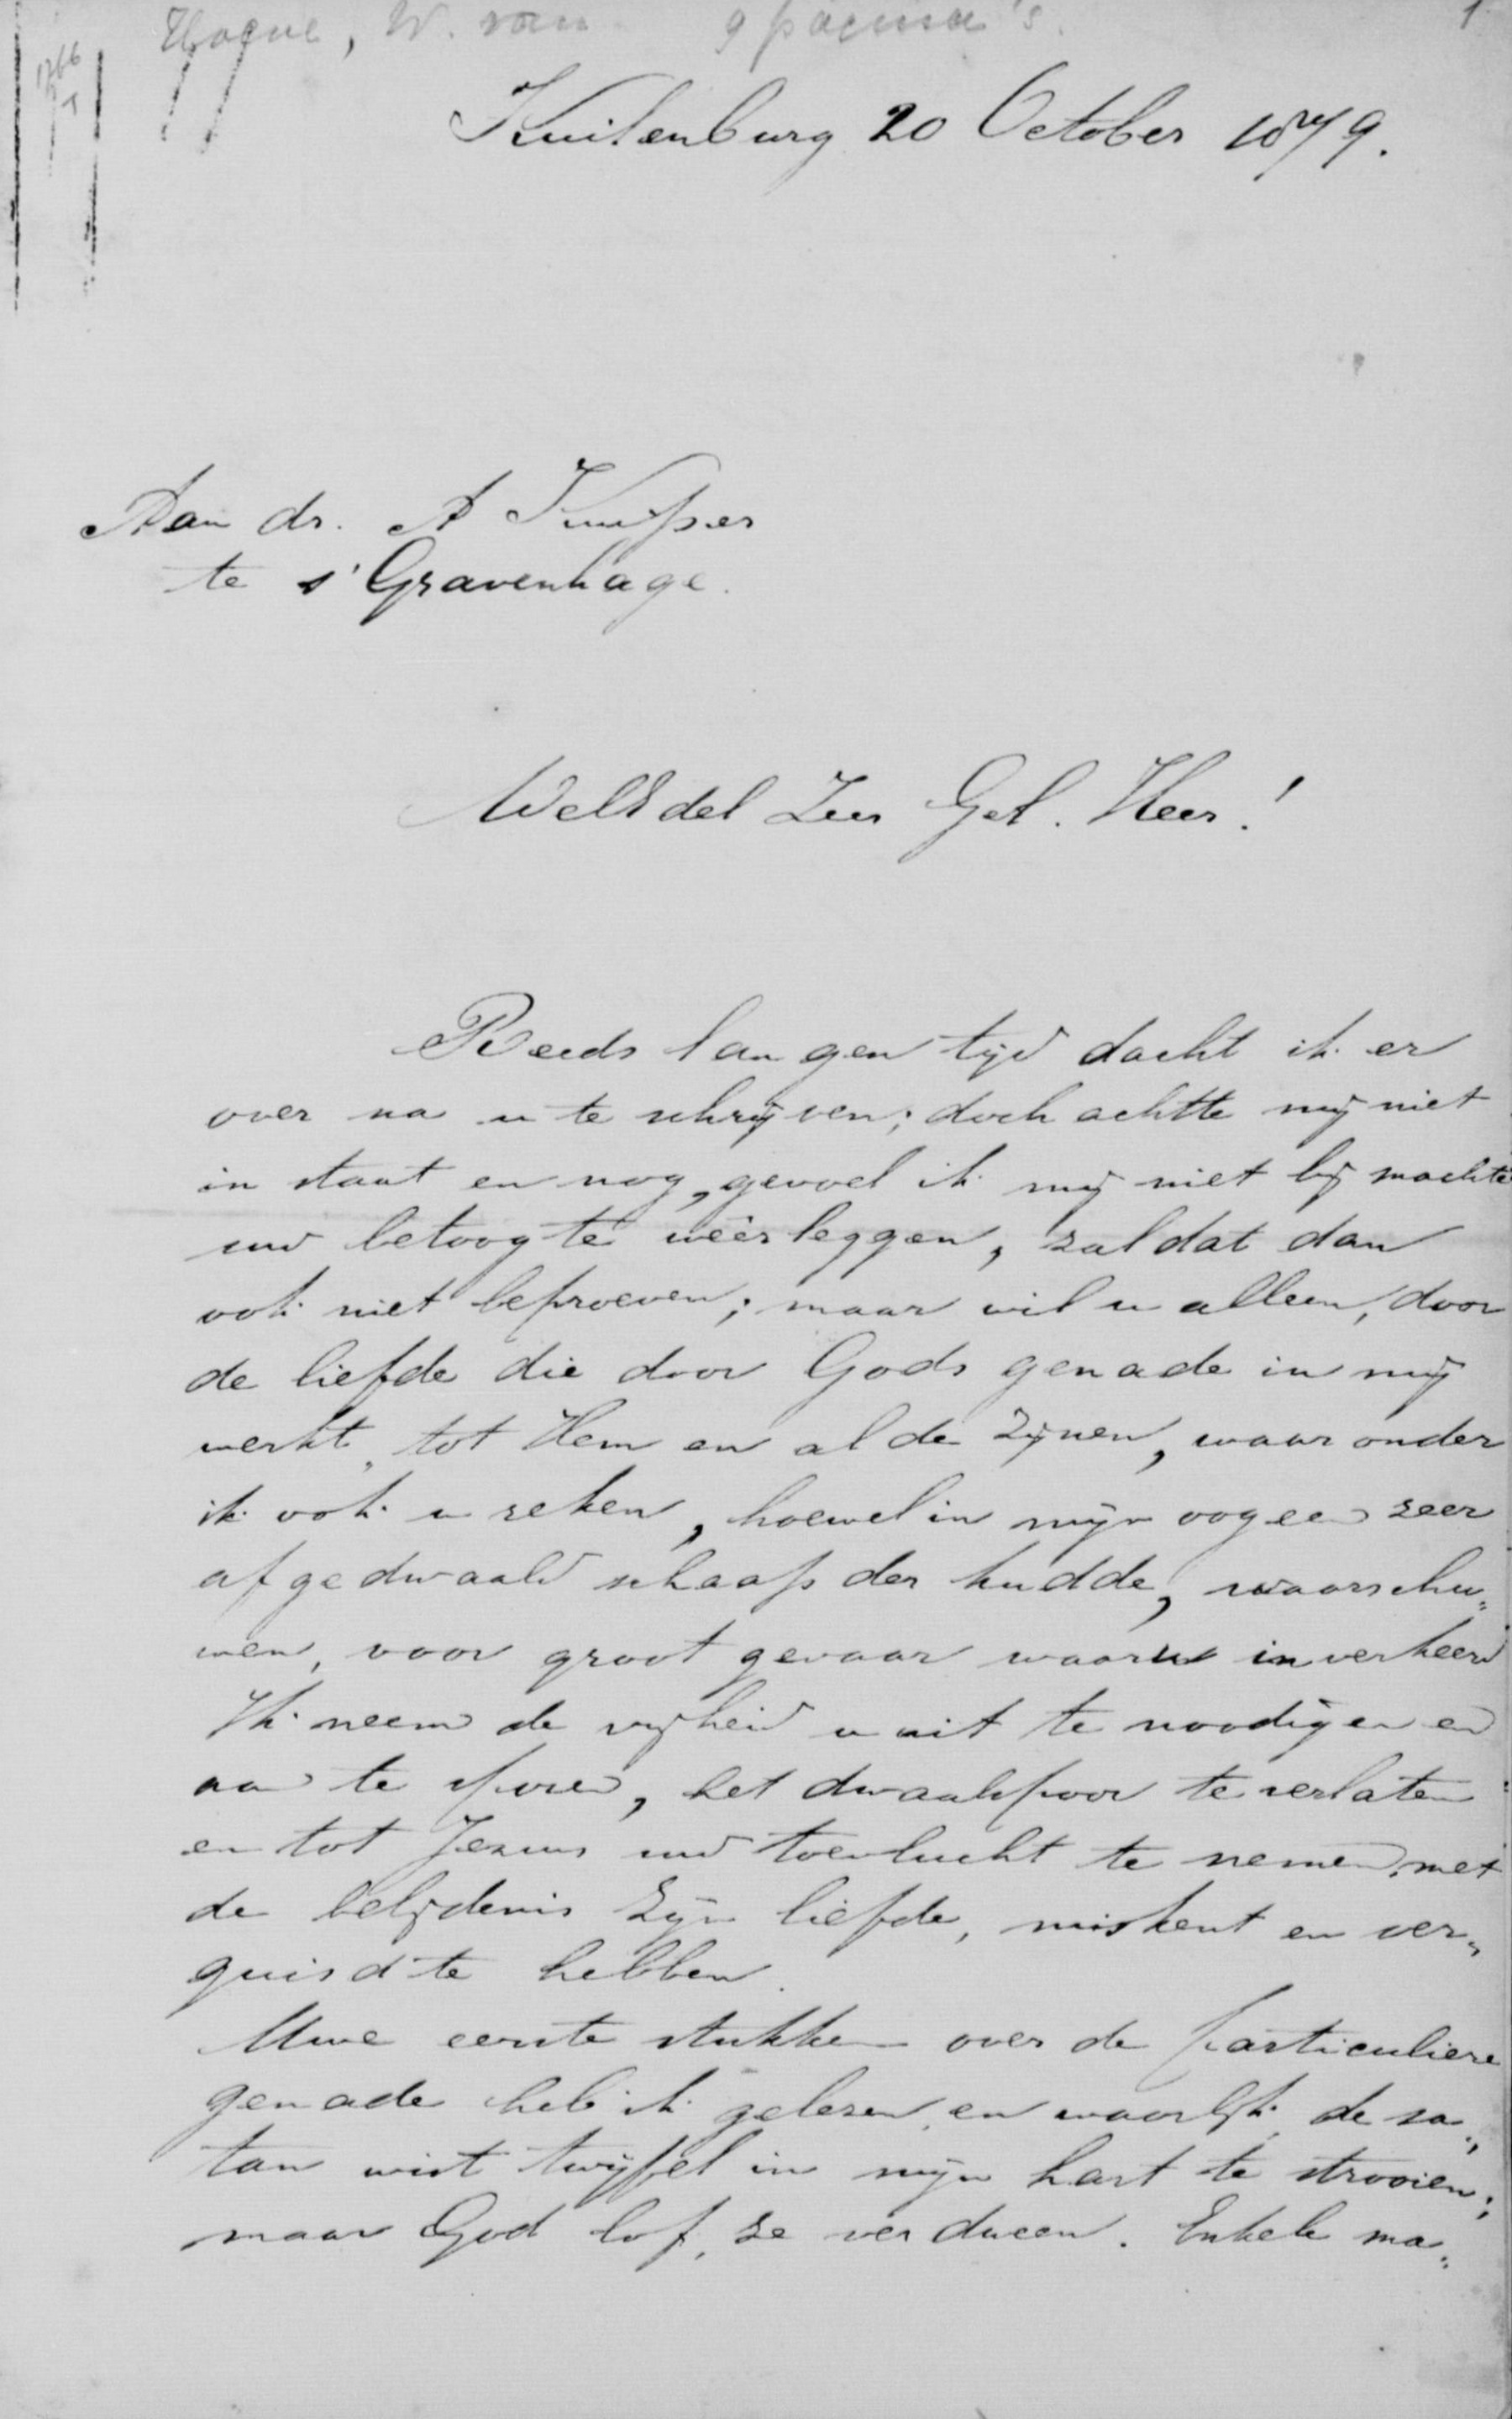 W. van 9 pagina's. 1
1766
Kuilenburg 20 October 1879.
Aan dr. A Kuijper
te s' Gravenhage.
WelEdel Zeer Gel. Heer!
Reeds langen tijd dacht ik er
over na u te schrijven; doch achtte mij niet
in staat en nog, gevoel ik mij niet bij machte
uw betoog te wêerleggen, zal dat dan
ook niet beproeven; maar wil u alleen, door
de liefde die door Gods genade in mij
werkt, tot Hem en al de zijnen, waaronder
ik ook u reken, hoewel in mijn oog een zeer
afgedwaald schaap der kudde, waarschu„
wen, voor groot gevaar waarin u verkeerd
Ik neem de vrijheid u uit te noodigen en
aan te sporen, het dwaalspoor te verlaten
en tot Jezus uw toevlucht te nemen, met
de belijdenis Zijn liefde, miskent en ver„
guisd te hebben.
Uwe eerste stukken over de particuliere
genade heb ik gelezen, en waarlijk de sa„
tan wist twijfel in mijn hart te strooien;
maar God lof, ze verdween. Enkele ma„